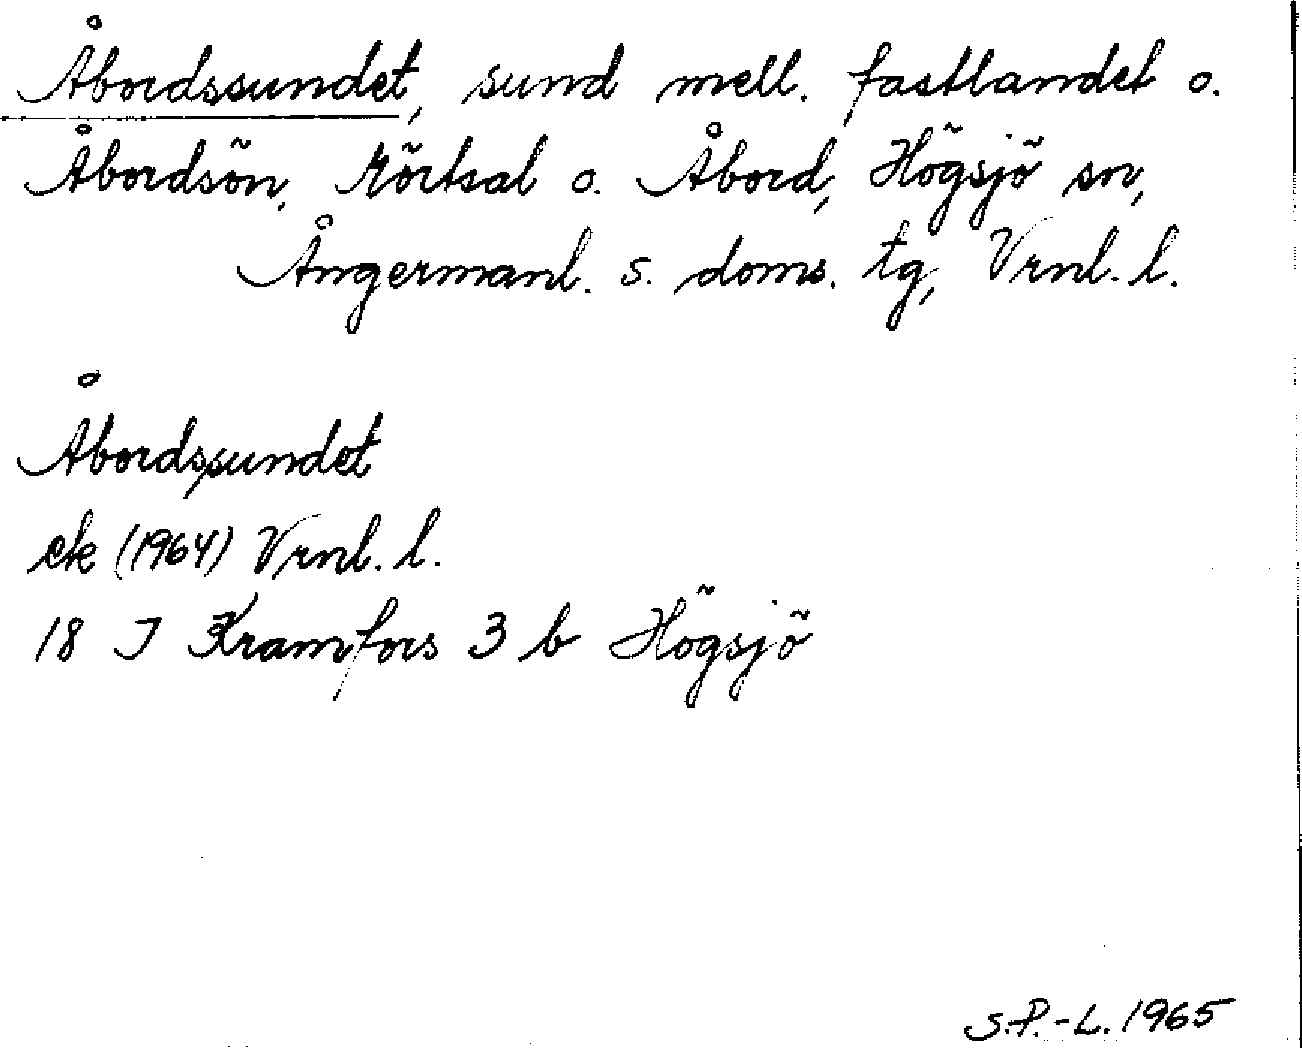 Åbordssundet, sund mell. fastlandet o.
Åbordsön, Mörtsal o. Åbord, Högsjö sn,
Ångermanl. s. doms. tg, Vrnl. l.
Åbordssundet
ek (1964) Vrnl. l.
18 I Kramfors 3 b Högsjö
S.P.-L. 1965